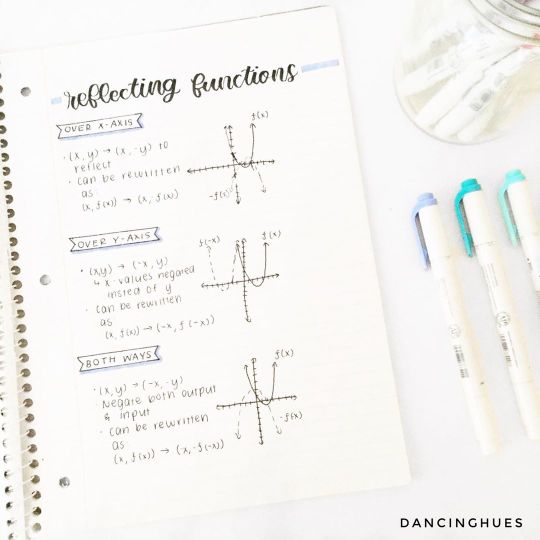 reflecting functions
OVER X-AXIS
· (x, y) → (x, -y) to
reflect
· can be rewritten
as
(x, f(x)) → (x, f(x))
f(x)
-f(x)
OVER Y-AXIS
· (x,y) → (-x, y)
↳ x-values negated
insted of y
· can be rewritten
as
(x, f(x)) → (-x, f(-x))
f(-x)
f(x)
BOTH WAYS
· (x, y) → (-x, -y)
Negate both output
& input
· can be rewritten
as
(x, f(x)) → (x, -f(-x))
f(x)
-f(x)
DANCINGHUES